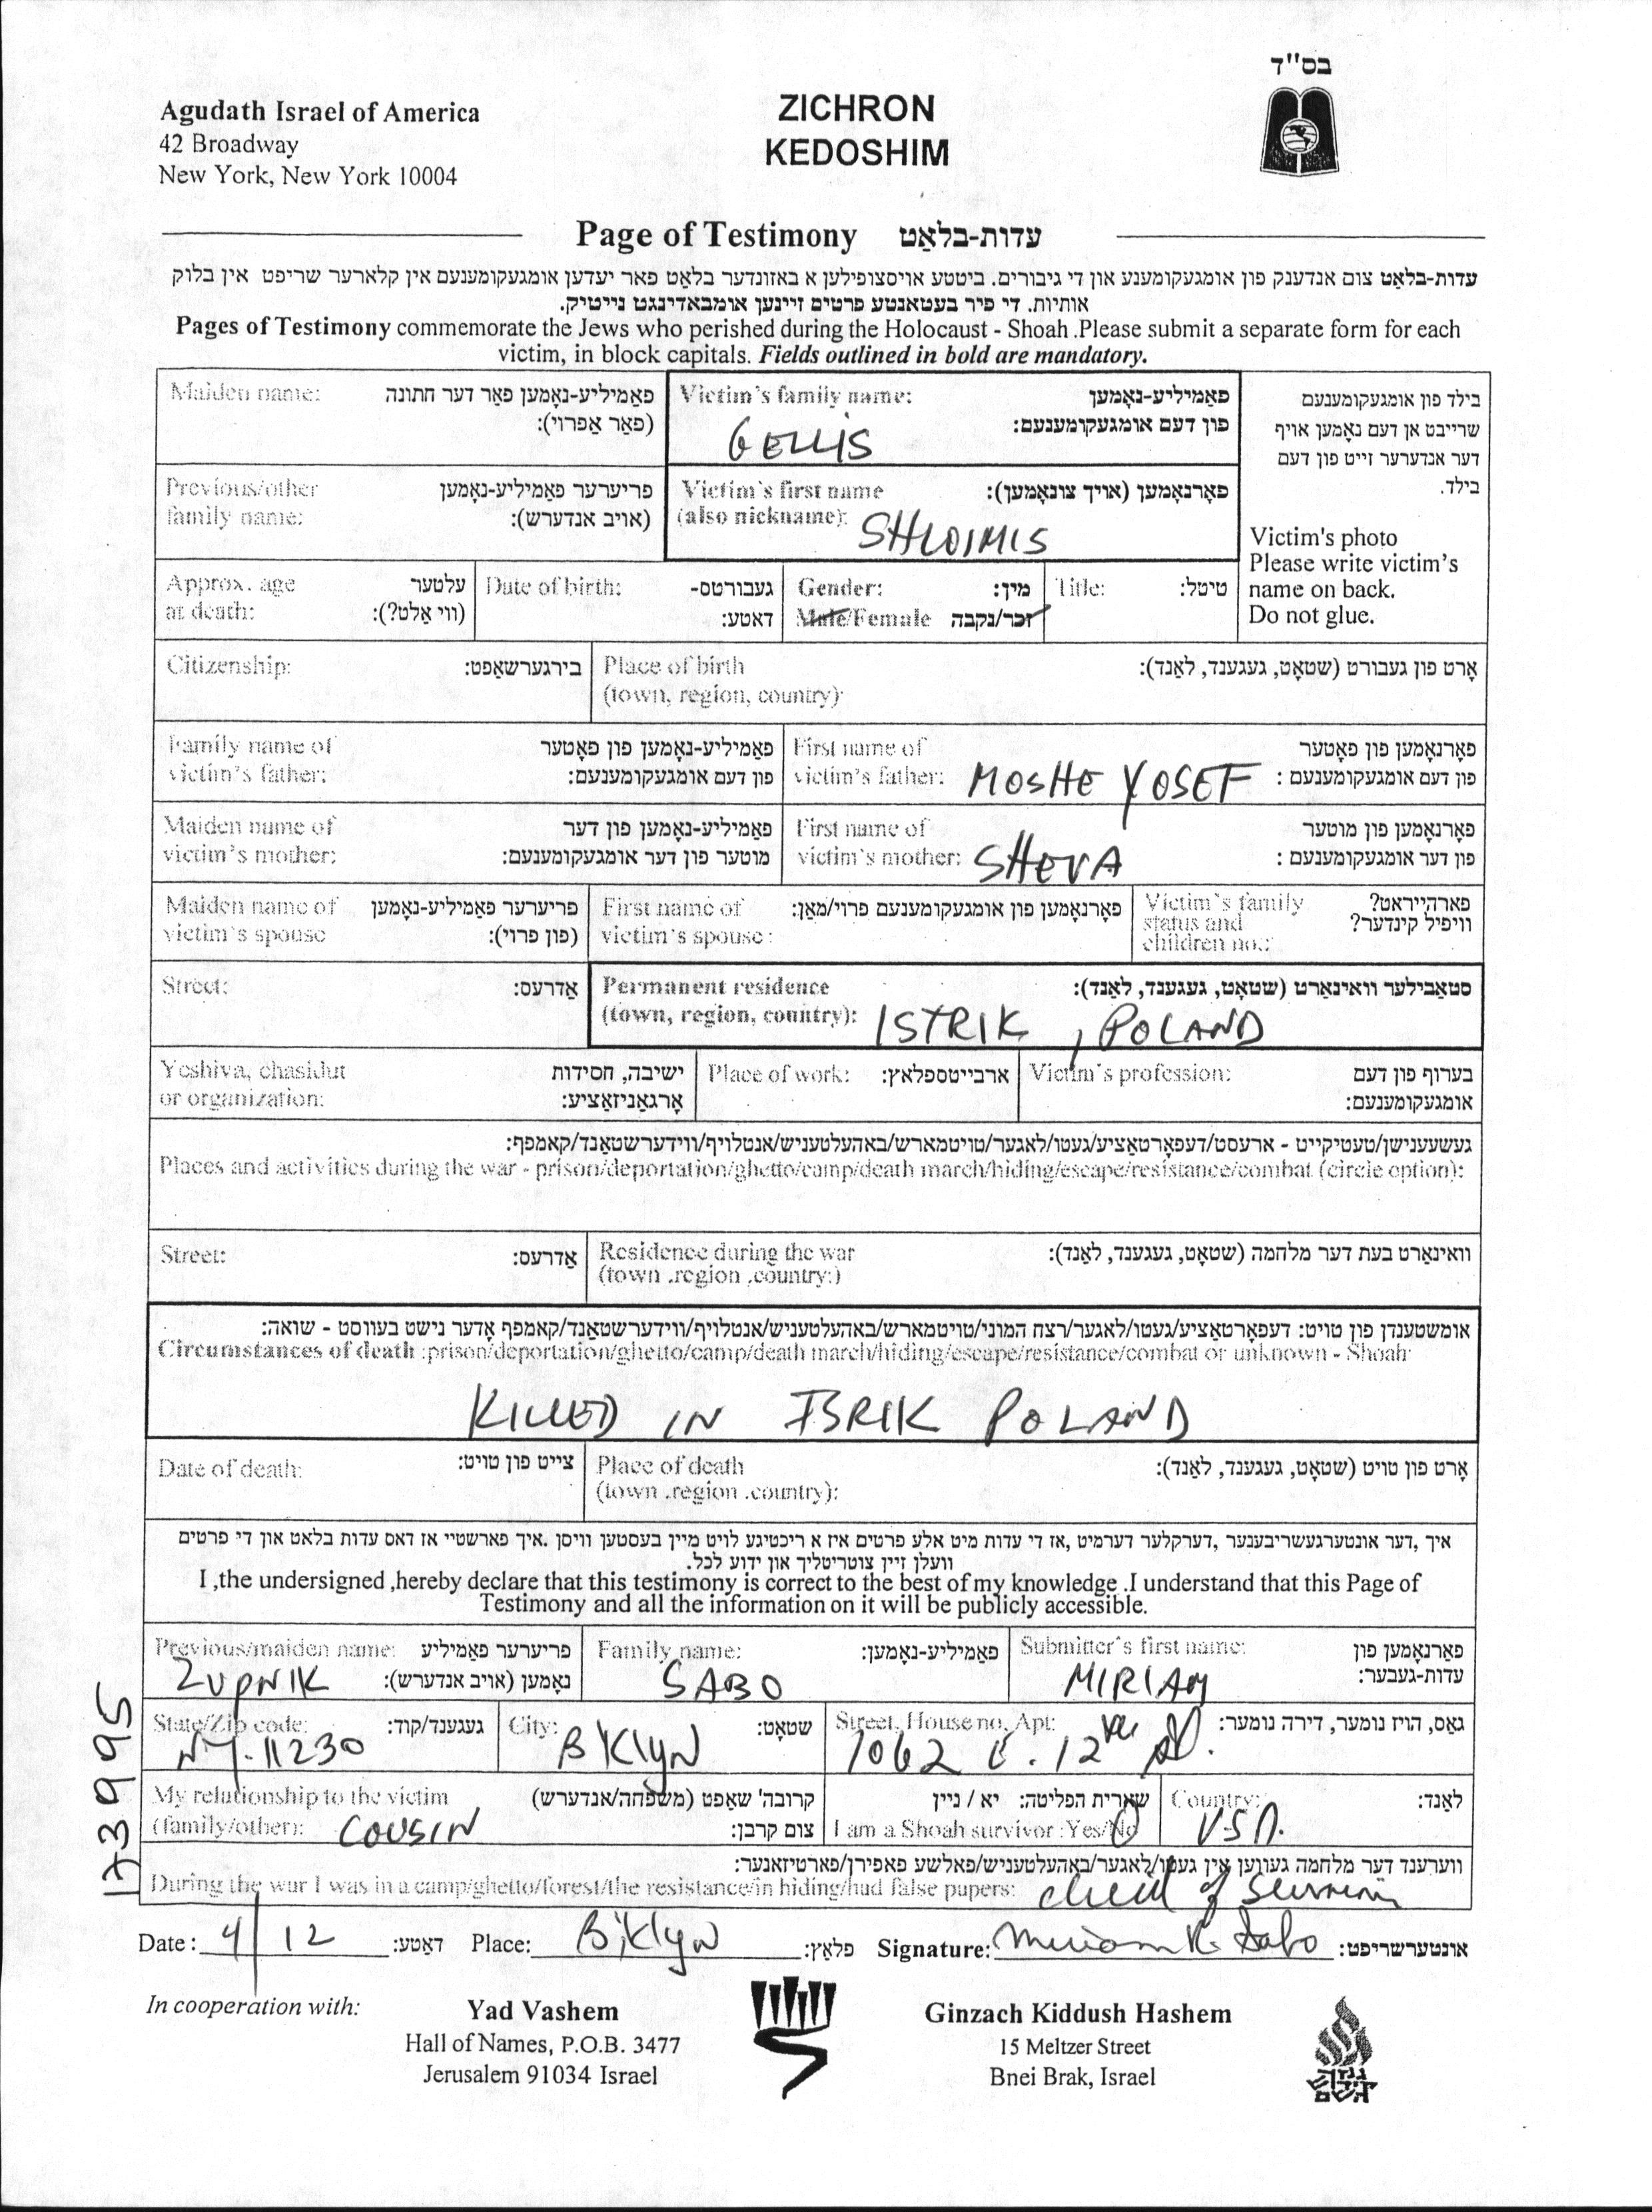 בס"ד
Agudath Israel of America
42 Broadway
New York, New York 10004
ZICHRON
KEDOSHIM
Page of Testimony עדות-בלאַט
עדות-בלאַט צום אנדענק פון אומגעקומענע און די גיבורים. ביטטע אויסצופילען א באזונדער בלאַט פאר יעדען אומגעקומענעם אין קלארער שריפט אין בלוק
אותיות. די פיר בעטאנטע פרטים זיינען אומבאדינגט נייטיק.
Pages of Testimony commemorate the Jews who perished during the Holocaust - Shoah .Please submit a separate form for each
victim, in block capitals. Fields outlined in bold are mandatory.
Maiden name: פאַמיליע-נאָמען פאַר דער חתונה
(פאַר אַפרוי):
Victim's family name: פאַמיליע-נאָמען
פון דעם אומגעקומענעם:
GELLIS
בילד פון אומגעקומענעם
שרייבט אן דעם נאָמען אויף
דער אנדערער זייט פון דעם
בילד.
Previous/other פריערער פאַמיליע-נאָמען
family name: (אויב אנדערש):
Victim's first name פאָרנאָמען (אויך צונאָמען):
(also nickname): SHLOIMIS
Victim's photo
Please write victim's
name on back.
Do not glue.
Approx. age עלטער
at death: (ווי אַלט?):
Date of birth: געבורטס-
דאטע:
Gender: מין:
Male/Female זכר/נקבה
Title: טיטל:
Citizenship: בירגערשאַפט:
Place of birth אָרט פון געבורט (שטאָט, געגענד, לאַנד):
(town, region, country):
Family name of פאַמיליע-נאָמען פון פאָטער
victim's father: פון דעם אומגעקומענעם:
First name of פאָרנאָמען פון פאָטער
victim's father: MOSHE YOSEF פון דעם אומגעקומענעם :
Maiden name of פאַמיליע-נאָמען פון דער
victim's mother: מוטער פון דער אומגעקומענעם:
First name of פאָרנאָמען פון מוטער
victim's mother: SHEVA פון דער אומגעקומענעם :
Maiden name of פריערער פאַמיליע-נאָמען
victim's spouse (פון פרוי):
First name of פאָרנאָמען פון אומגעקומענעם פרוי/מאַן:
victim's spouse :
Victim's family פארהייראט?
status and וויפיל קינדער?
children no.:
Street: אַדרעס:
Permanent residence סטאַבילער וואינאַרט (שטאָט, געגענד, לאַנד):
(town, region, country): ISTRIK , POLAND
Yeshiva, chasidut ישיבה, חסידות
or organization: אָרגאַניזאַציע:
Place of work: ארבייטספלאץ:
Victim's profession: בערוף פון דעם
אומגעקומענעם:
געשעענישן/טעטיקייט - ארעסט/דעפאָרטאַציע/געטו/לאגער/טויטמארש/באהעלטעניש/אנטלויף/ווידערשטאַנד/קאמפף:
Places and activities during the war - prison/deportation/ghetto/camp/death march/hiding/escape/resistance/combat (circle option):
Street: אַדרעס:
Residence during the war וואינאַרט בעת דער מלחמה (שטאָט, געגענד, לאַנד):
(town .region .country:)
אומשטענדן פון טויט: דעפאָרטאַציע/געטו/לאגער/רצח המוני/טויטמארש/באהעלטעניש/אנטלויף/ווידערשטאַנד/קאמפף אָדער נישט בעווסט - שואה:
Circumstances of death :prison/deportation/ghetto/camp/death march/hiding/escape/resistance/combat or unknown - Shoah:
KILLED IN ISRIK POLAND
Date of death: צייט פון טויט:
Place of death אָרט פון טויט (שטאָט, געגענד, לאַנד):
(town .region .country):
איך ,דער אונטערגעשריבענער ,דערקלער דערמיט ,אז די עדות מיט אלע פרטים איז א ריכטיגע לויט מיין בעסטען וויסן .איך פארשטיי אז דאס עדות בלאט און די פרטים
וועלן זיין צוטריטליך און ידוע לכל.
I ,the undersigned ,hereby declare that this testimony is correct to the best of my knowledge .I understand that this Page of
Testimony and all the information on it will be publicly accessible.
Previous/maiden name: פריערער פאַמיליע
ZUPNIK נאָמען (אויב אנדערש):
Family name: פאַמיליע-נאָמען:
SABO
Submitter's first name: פאָרנאָמען פון
MIRIAM עדות-געבער:
State/Zip code: געגענד/קוד:
NY. 11230
City: שטאָט:
B'Klyn
Street, House no, Apt: גאַס, הויז נומער, דירה נומער:
1062 E. 12th
My relationship to the victim קרובה' שאַפט (משפחה/אנדערש)
(family/other): COUSIN צום קרבן:
שארית הפליטה: יא / ניין
I am a Shoah survivor :Yes/No
Country: לאַנד:
USA.
ווערענד דער מלחמה געווען אין געטו/לאַגער/באַהעלטעניש/פאַלשע פאַפירן/פאַרטיזאַנער:
During the war I was in a camp/ghetto/forest/the resistance/in hiding/had false papers: child of
173995
Date: 4/12 דאַטע: Place: B'Klyn פלאַץ: Signature: Miriam K Sabo אונטערשריפט:
In cooperation with:
Yad Vashem
Hall of Names, P.O.B. 3477
Jerusalem 91034 Israel
Ginzach Kiddush Hashem
15 Meltzer Street
Bnei Brak, Israel
גנזך
קידוש
השם